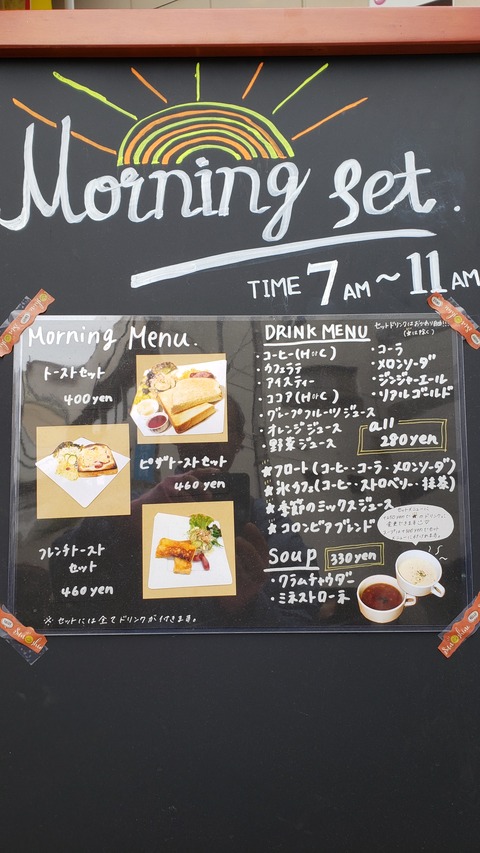 Morning Set.
TIME 7AM~11AM
Morning Menu.
トーストセット
400yen
ピザトーストセット
460yen
フレンチトースト
セット
460yen
※セットには全てドリンクが付きます。
DRINK MENU
セットドリンクはおかわり自由!!
(★は除く)
・コーヒー(HorC)
・カフェラテ
・アイスティー
・ココア(HorC)
・グレープフルーツジュース
・オレンジジュース
・野菜ジュース
・コーラ
・メロンソーダ
・ジンジャーエール
・リアルゴールド
all
280yen
★フロート(コーヒー・コーラ・メロンソーダ)
★氷カフェ(コーヒー・ストロベリー・抹茶)
★季節のミックスジュース
★コロンビアブレンド
Soup 330yen
・クラムチャウダー
・ミネストローネ